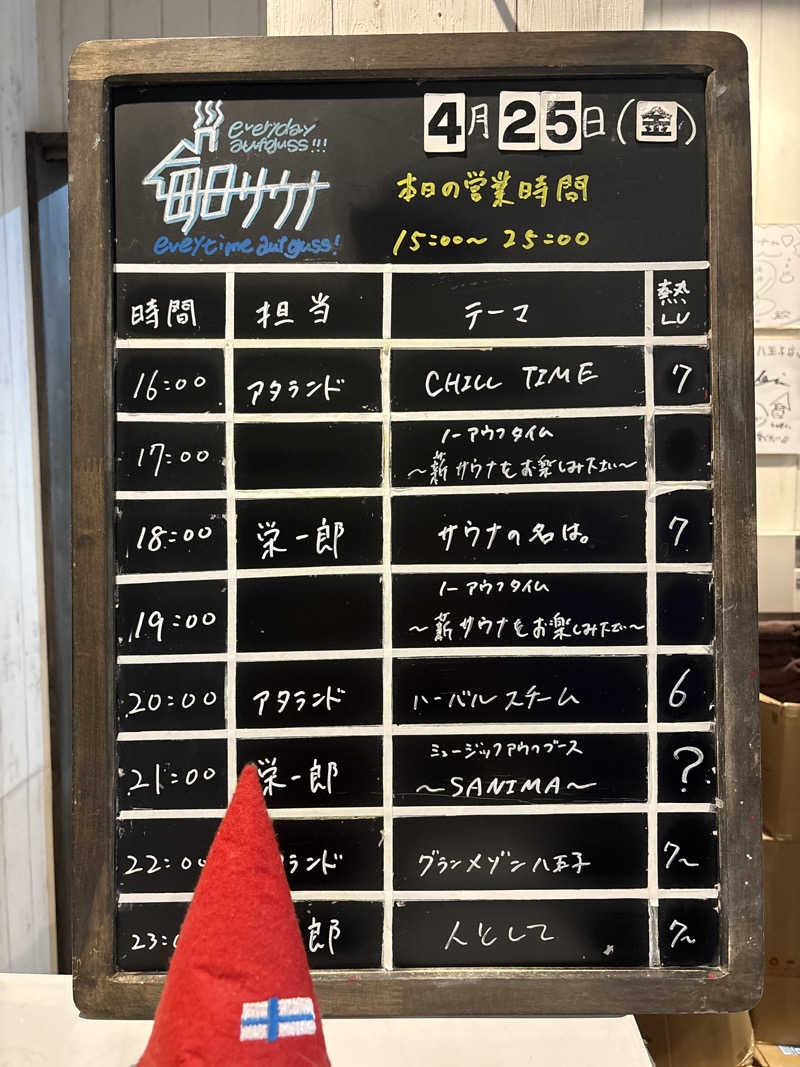 everyday
aufguss!!!
毎日サウナ
everytime aufguss!
4月25日(金)
本日の営業時間
15:00〜25:00
時間 担当 テーマ 熱LV
16:00 アタランド CHILL TIME 7
17:00 ノーアウフタイム
〜薪サウナをお楽しみ下さい〜
18:00 栄一郎 サウナの名は。 7
19:00 ノーアウフタイム
〜薪サウナをお楽しみ下さい〜
20:00 アタランド ハーバルスチーム 6
21:00 栄一郎 ミュージックアウフグース
〜SANIMA〜 ?
22:00 ランド グランメゾン八王子 7〜
23: 郎 人として 7〜